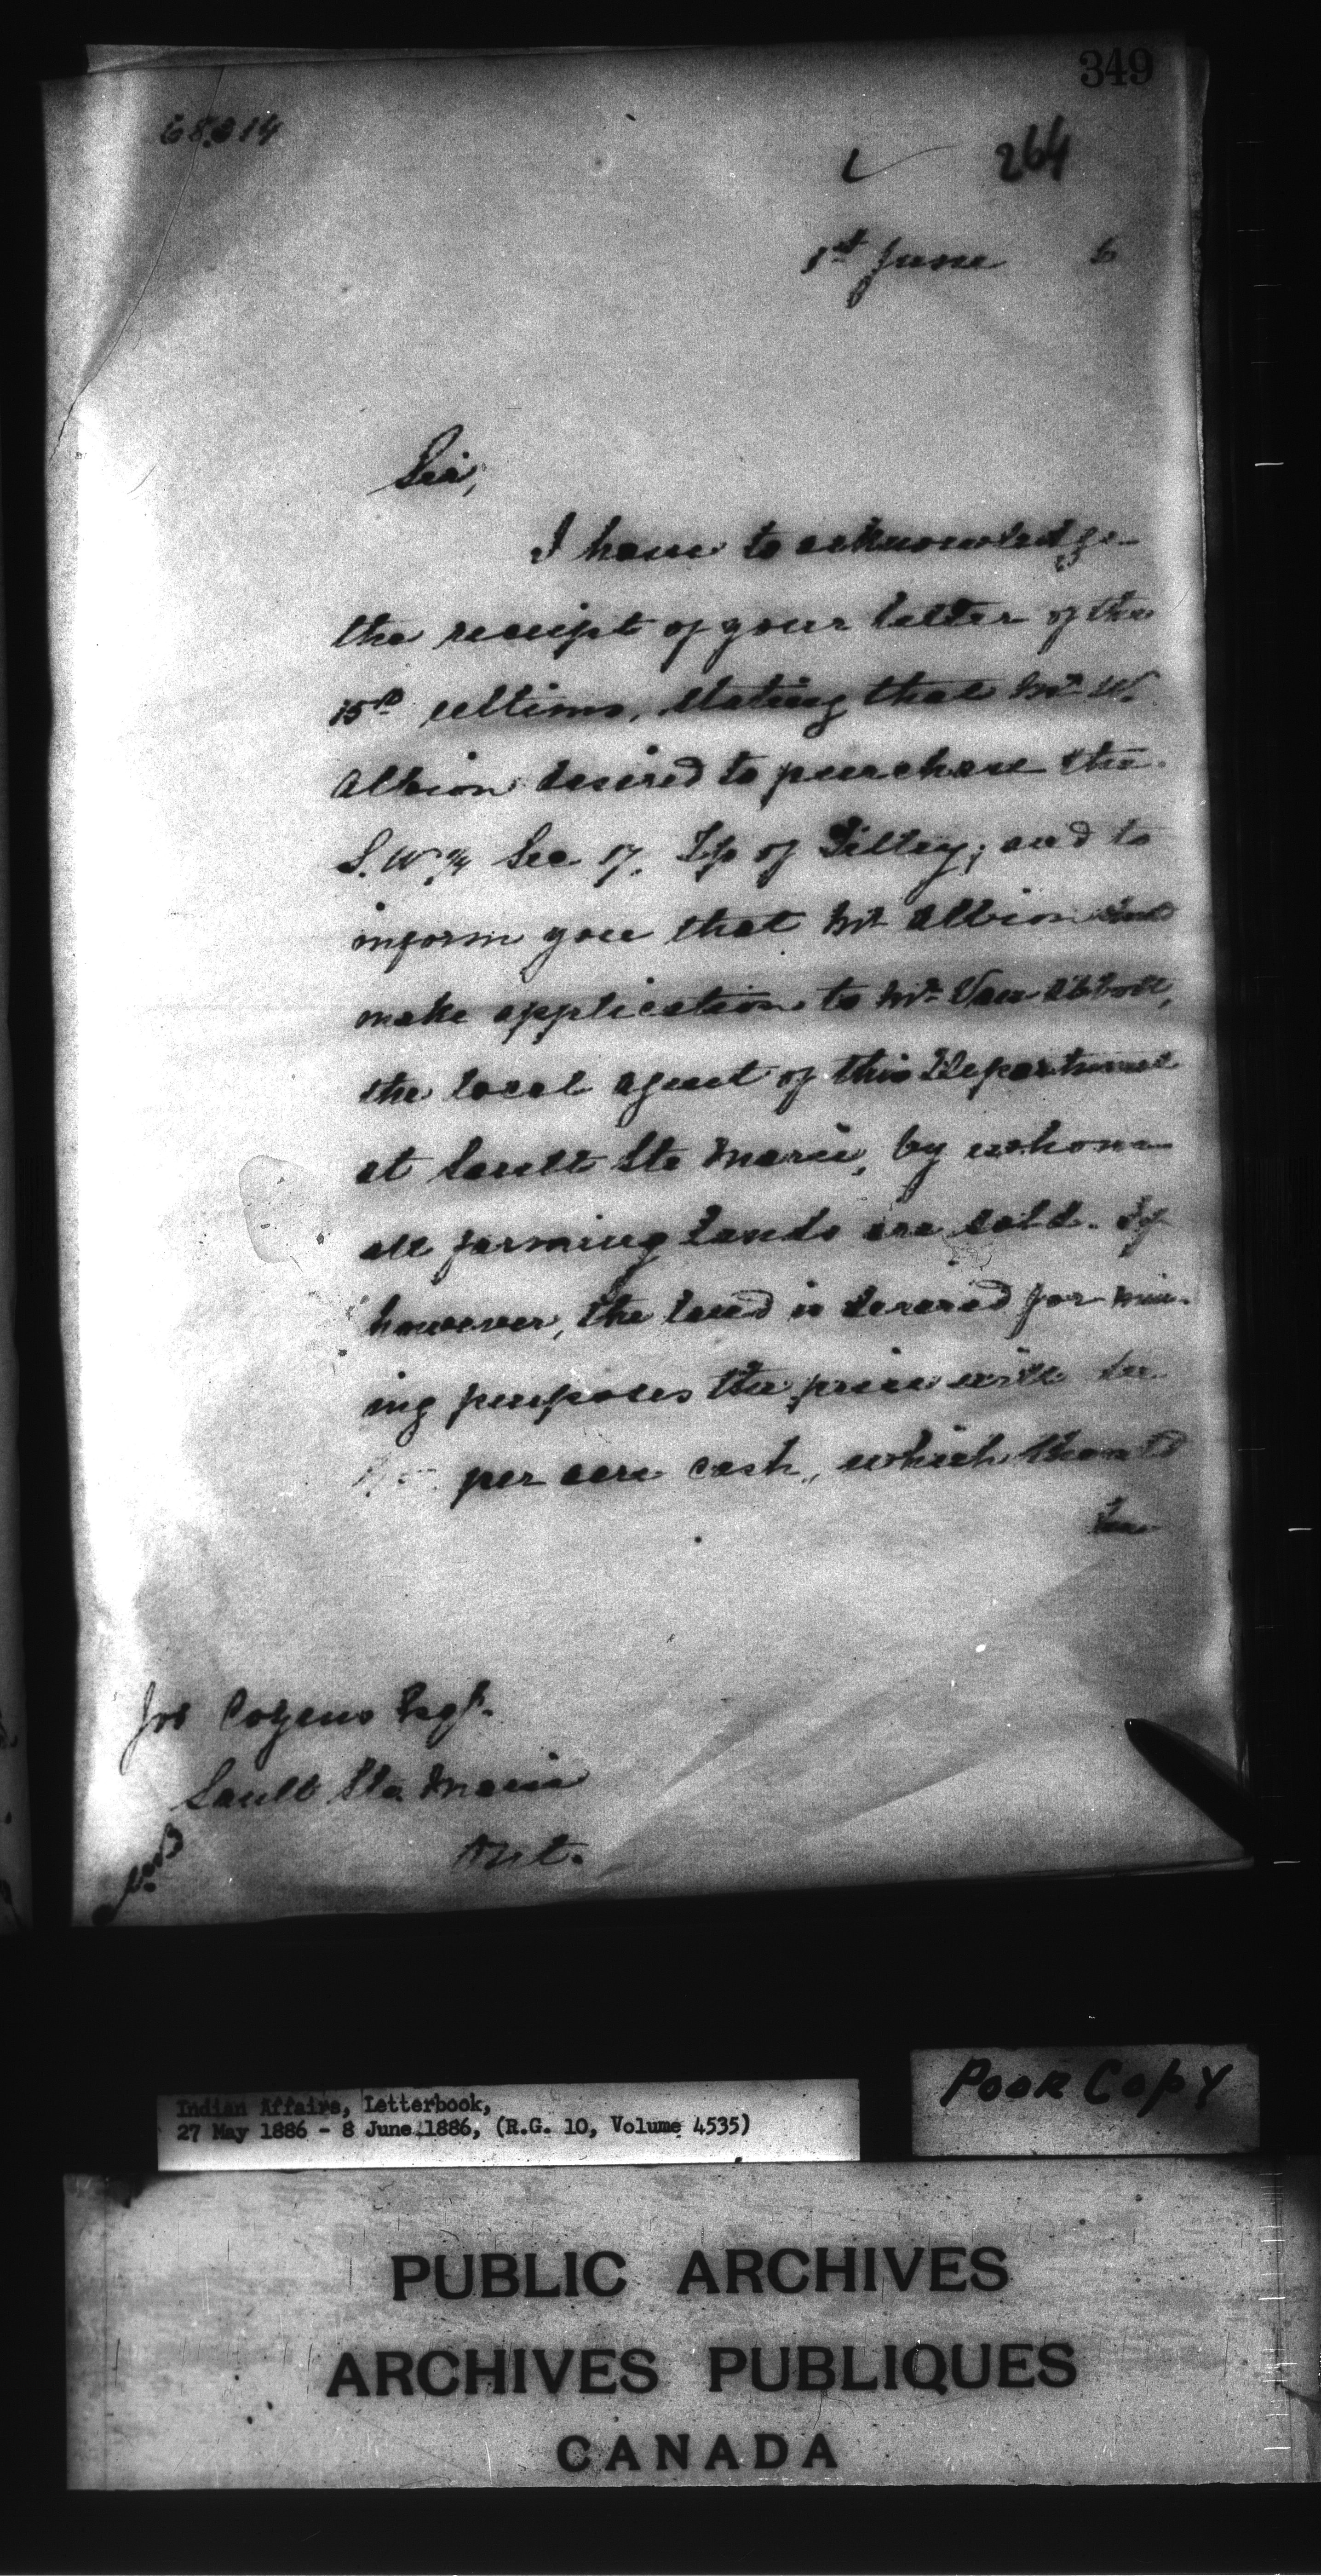 349
264
1st June 6
Sir,
I have to acknowledge
the receipt of your letter of the
15th ultimo, stating that Mr W.
Albion desired to purchase the
S.W.¼ Sec 17, Tp of Tilley; and to
inform you that Mr Albion
make application to Mr Van Abbott,
the local agent of this Department
at Sault Ste Marie, by whom
all farming lands are sold. If
however, the land is desired for min-
ing purposes the price will be
per acre cash, which should
be
Jos Cozens Esqr.
Sault Ste Marie
Ont.
Poor Copy
Indian Affairs, Letterbook,
27 May 1886 - 8 June 1886, (R.G. 10, Volume 4535)
PUBLIC ARCHIVES
ARCHIVES PUBLIQUES
CANADA